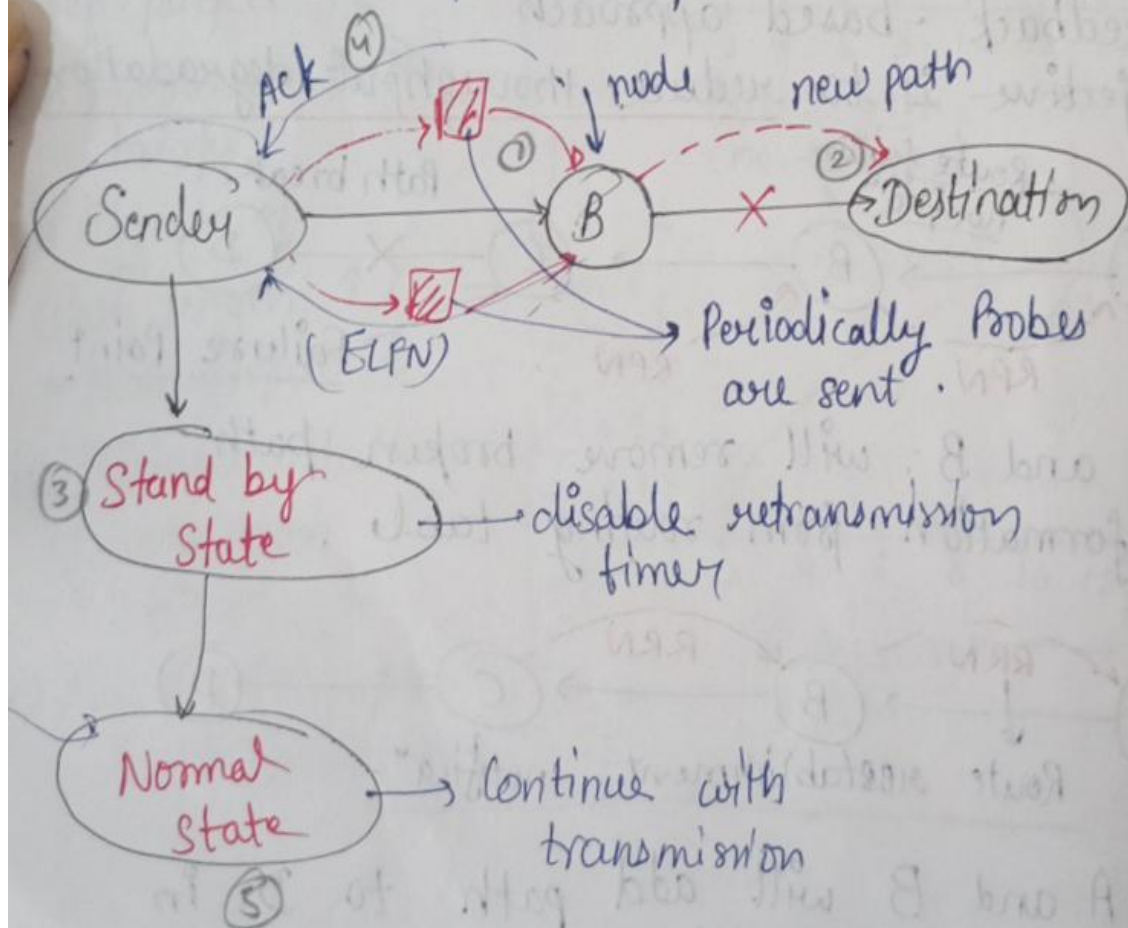 Ack
4
node
new path
1
2
Sender
B
Destination
(ELFN)
Periodically Probes
are sent.
3
Stand by
State
disable retransmission
timer
Normal
State
Continue with
transmission
5